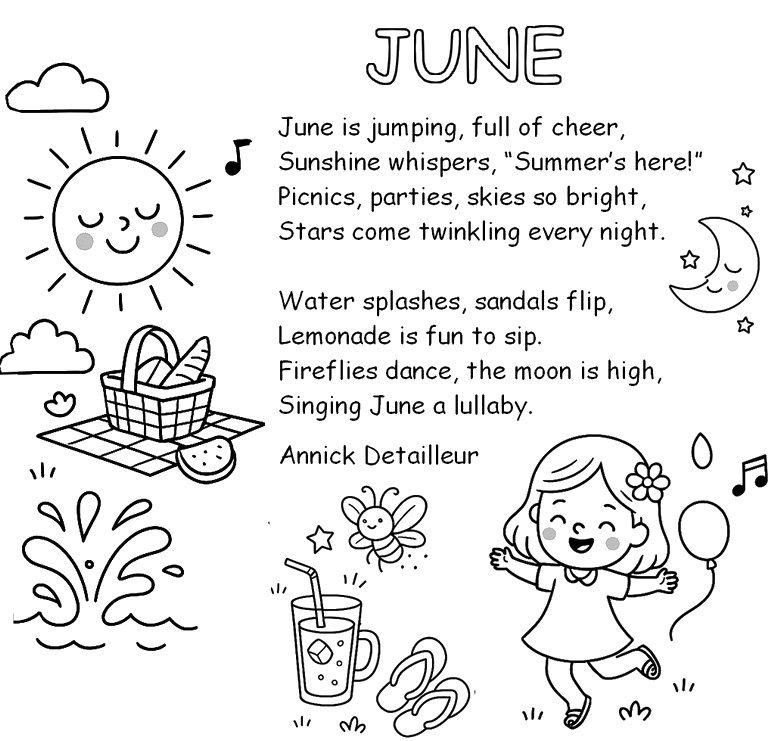 JUNE
June is jumping, full of cheer,
Sunshine whispers, “Summer’s here!”
Picnics, parties, skies so bright,
Stars come twinkling every night.
Water splashes, sandals flip,
Lemonade is fun to sip.
Fireflies dance, the moon is high,
Singing June a lullaby.
Annick Detailleur